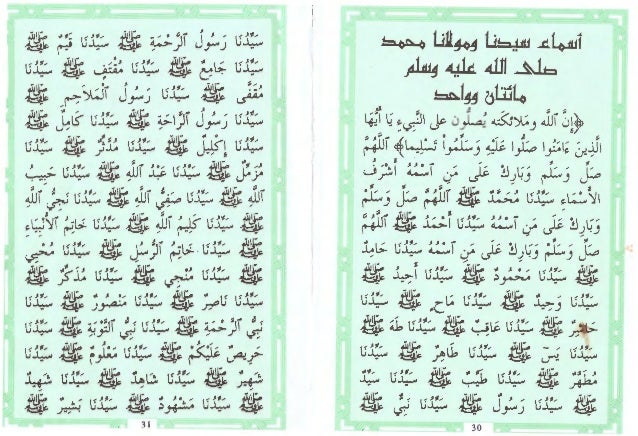 أسماء سيدنا ومولانا محمد
صلى الله عليه وسلم
مائتان وواحد
﴿إِنَّ ٱللَّهَ وَمَلَائِكَتَهُ يُصَلُّونَ عَلَى النَّبِيءِ يَا أَيُّهَا
الَّذِينَ ءَامَنُوا صَلُّوا عَلَيْهِ وَسَلِّمُوا تَسْلِيما﴾ اللَّهُمَّ
صَلِّ وَسَلِّمْ وَبَارِكْ عَلَى مَنِ ٱسْمُهُ أَشْرَفُ
الأَسْمَاءِ سَيِّدُنَا مُحَمَّدٌ ﷺ اللَّهُمَّ صَلِّ وَسَلِّمْ
وَبَارِكْ عَلَى مَنِ ٱسْمُهُ سَيِّدُنَا أَحْمَدُ ﷺ اللَّهُمَّ
صَلِّ وَسَلِّمْ وَبَارِكْ عَلَى مَنِ ٱسْمُهُ سَيِّدُنَا حَامِدٌ
ﷺ سَيِّدُنَا مَحْمُودٌ ﷺ سَيِّدُنَا أَحِيدٌ ﷺ
سَيِّدُنَا وَحِيدٌ ﷺ سَيِّدُنَا مَاحٍ ﷺ سَيِّدُنَا
حَاشِرٌ ﷺ سَيِّدُنَا عَاقِبٌ ﷺ سَيِّدُنَا طَهَ ﷺ
سَيِّدُنَا يَسٓ ﷺ سَيِّدُنَا طَاهِرٌ ﷺ سَيِّدُنَا
مُطَهَّرٌ ﷺ سَيِّدُنَا طَيِّبٌ ﷺ سَيِّدُنَا سَيِّدٌ
ﷺ سَيِّدُنَا رَسُولٌ ﷺ سَيِّدُنَا نَبِيٌّ ﷺ
30
سَيِّدُنَا رَسُولُ ٱلرَّحْمَةِ ﷺ سَيِّدُنَا قَيِّمٌ ﷺ
سَيِّدُنَا جَامِعٌ ﷺ سَيِّدُنَا مُقْتَفٍ ﷺ سَيِّدُنَا
مُقَفًّى ﷺ سَيِّدُنَا رَسُولُ ٱلْمَلَاحِمِ ﷺ
سَيِّدُنَا رَسُولُ ٱلرَّاحَةِ ﷺ سَيِّدُنَا كَامِلٌ ﷺ
سَيِّدُنَا إِكْلِيلٌ ﷺ سَيِّدُنَا مُدَّثِّرٌ ﷺ سَيِّدُنَا
مُزَّمِّلٌ ﷺ سَيِّدُنَا عَبْدُ ٱللَّهِ ﷺ سَيِّدُنَا حَبِيبُ
ٱللَّهِ ﷺ سَيِّدُنَا صَفِيُّ ٱللَّهِ ﷺ سَيِّدُنَا نَجِيُّ ٱللَّهِ
ﷺ سَيِّدُنَا كَلِيمُ ٱللَّهِ ﷺ سَيِّدُنَا خَاتِمُ ٱلْأَنْبِيَاءِ
ﷺ سَيِّدُنَا خَاتِمُ ٱلرُّسُلِ ﷺ سَيِّدُنَا مُحْيِي
ﷺ سَيِّدُنَا مُنْجِي ﷺ سَيِّدُنَا مُذَكِّرٌ ﷺ
سَيِّدُنَا نَاصِرٌ ﷺ سَيِّدُنَا مَنْصُورٌ ﷺ سَيِّدُنَا
نَبِيُّ ٱلرَّحْمَةِ ﷺ سَيِّدُنَا نَبِيُّ ٱلتَّوْبَةِ ﷺ سَيِّدُنَا
حَرِيصٌ عَلَيْكُمْ ﷺ سَيِّدُنَا مَعْلُومٌ ﷺ سَيِّدُنَا
شَهِيرٌ ﷺ سَيِّدُنَا شَاهِدٌ ﷺ سَيِّدُنَا شَهِيدٌ
ﷺ سَيِّدُنَا مَشْهُودٌ ﷺ سَيِّدُنَا بَشِيرٌ ﷺ
31